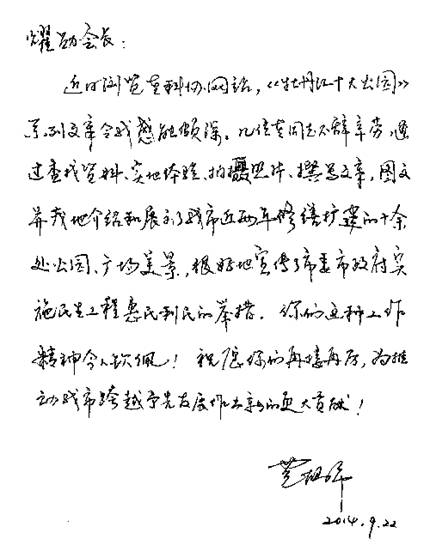 耀勋会长：
近日浏览老科协网站，《牡丹江十大公园》
系列文章令我感触颇深。几位老同志不辞辛劳，通
过查找资料、实地体验、拍摄照片、撰写文章，图文
并茂地介绍和展示了我市近两年修缮扩建的十余
处公园、广场美景，很好地宣传了市委市政府实
施民生工程惠民利民的举措。你们的这种工作
精神令人钦佩！祝愿你们再接再厉，为推
动我市跨越争先发展作出新的更大贡献！
2014.9.22